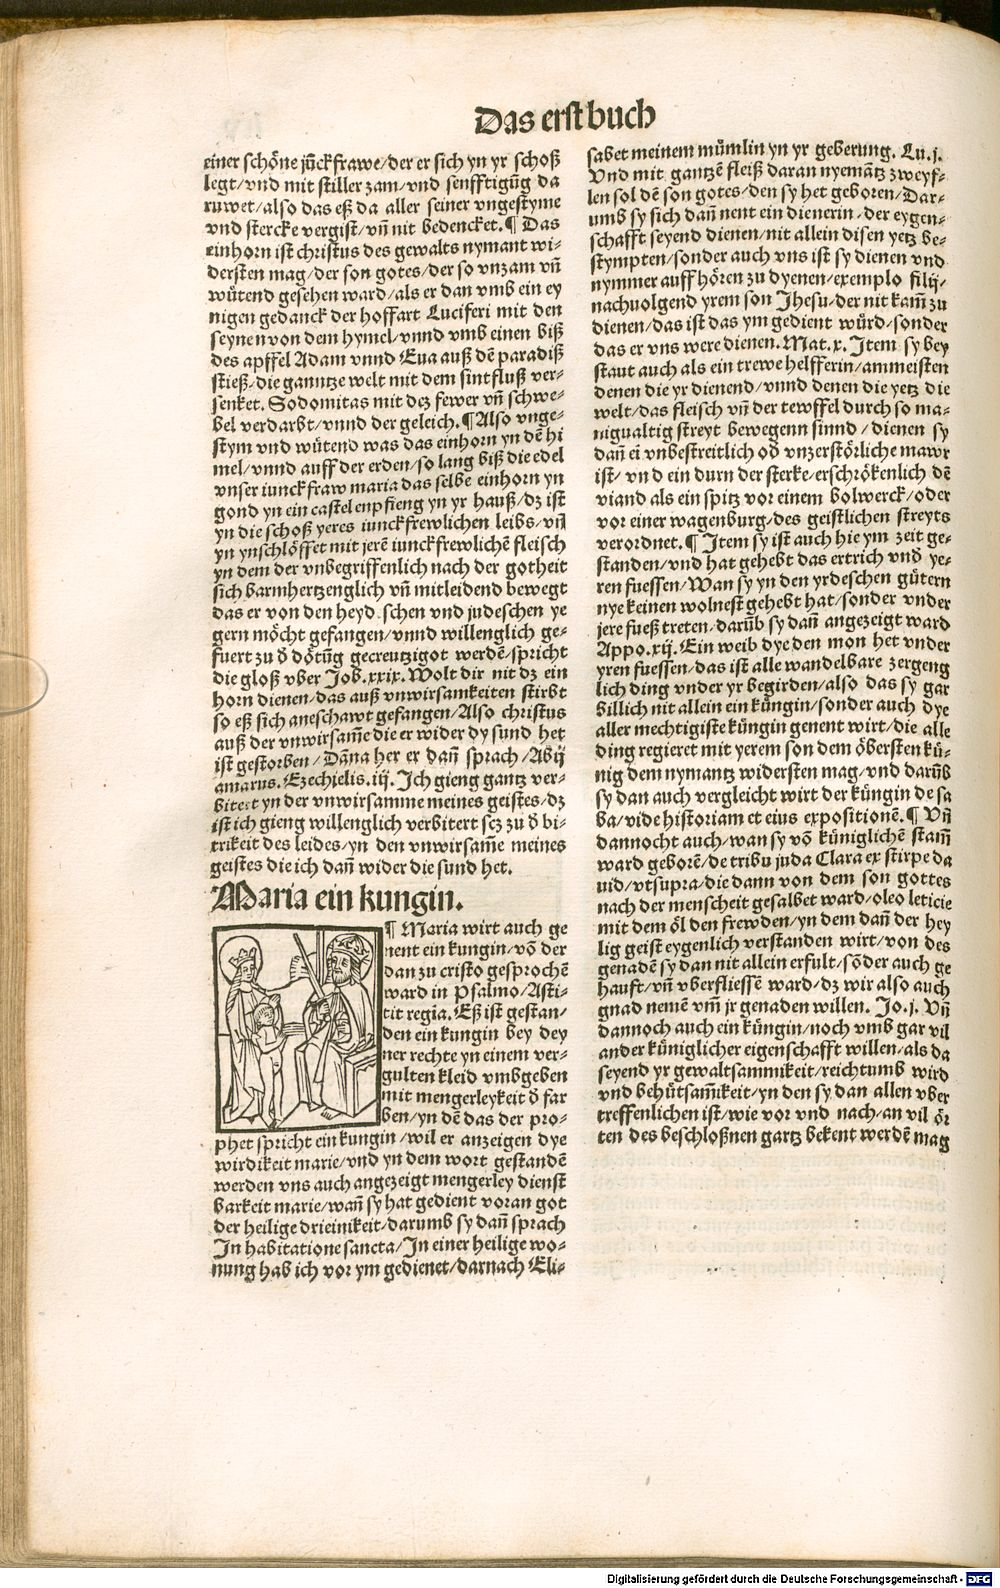 Das erst buch
einer schöne jūckfrawe/der er sich yn yr schoß
legt/vnd mit stiller zam/vnd senfftigūg da
ruwet/also das eß da aller seiner vngestyme
vnd stercke vergist/vn̄ nit bedencket.¶ Das
einhorn ist christus des gewalts nymant wi⸗
dersten mag/der son gotes/der so vnzam vn̄
wůtend gesehen ward/als er dan vmb ein ey
nigen gedanck der hoffart Luciferi mit den
seynen von dem hymel/vnnd vmb einen biß
des apffel Adam vnnd Eua auß dē paradiß
stieß/die ganntze welt mit dem sintfluß ver⸗
senket. Sodomitas mit dez fewer vn̄ schwe⸗
bel verdarbt/vnnd der geleich.¶Also vnge⸗
stym vnd wůtend was das einhorn yn dē hi
mel/vnnd auff der erden/so lang biß die edel
vnser iunckfraw maria das selbe einhorn yn
gond yn ein castel enpfieng yn yr hauß/dz ist
yn die schoß yeres iunckfrewlichen leibs/vn̄
yn ynschlöffet mit jerē iunckfrewlichē fleisch
yn dem der vnbegriffenlich nach der gotheit
sich barmhertzenglich vn̄ mitleidend bewegt
das er von den heyd schen vnd judeschen ye
gern möcht gefangen/vnnd willenglich ge⸗
fuert zu d̄ dötūg gecreutzigot werdē/spricht
die gloß vber Job.xxix.Wolt dir nit dz ein
horn dienen/das auß vnwirsamkeiten stirbt
so eß sich aneschawt gefangen/Also christus
auß der vnwirsam̄e die er wider dy sund het
ist gestorben/Dān̄a her er dan̄ sprach/Abij
amarus.Ezechielis.iij.Ich gieng gantz ver⸗
bitert yn der vnwirsamme meines geistes/dz
ist ich gieng willenglich verbitert scz zu d̄ bi⸗
trikeit des leides/yn den vnwirsam̄e meines
geistes die ich dan̄ wider die sund het.
Maria ein kungin.
¶ Maria wirt auch ge
nent ein kungin/vō der
dan zu cristo gesprochē
ward in Psalmo/Asti⸗
tit regia. Eß ist gestan/
den ein kungin bey dey
ner rechte yn einem ver⸗
gulten kleid vmbgeben
mit mengerleykeit d̄ far
ben/yn dē das der pro⸗
phet spricht ein kungin/wil er anzeigen dye
wirdikeit marie/vnd yn dem wort gestandē
werden vns auch angezeigt mengerley dienst
barkeit marie/wan̄ sy hat gedient voran got
der heilige drieinikeit/darumb sy dan̄ sprach
In habitatione sancta/In einer heilige wo⸗
nung hab ich vor ym gedienet/darnach Eli⸗
sabet meinem můmlin yn yr geberung. Lu.j.
Vnd mit gantzē fleiß daran nyemātz zweyf⸗
len sol dē son gotes/den sy het geboren/Dar⸗
umb sy sich dan̄ nent ein dienerin/der eygen⸗
schafft seyend dienen/nit allein disen yetz be⸗
stympten/sonder auch vns ist sy dienen vnd
nymmer auff hören zu dyenen/exemplo filij/
nachuolgend yrem son Jhesu/der nit kam̄ zu
dienen/das ist das ym gedient würd/sonder
das er vns were dienen.Mat.x.Item sy bey
staut auch als ein trewe helfferin/ammeisten
denen die yr dienend/vnnd denen die yetz die
welt/das fleisch vn̄ der tewffel durch so ma⸗
nigualtig streyt bewegenn sinnd/dienen sy
dan̄ ei vnbestreitlich od̄ vnzerstörliche mawr
ist/vnd ein durn der sterke/erschrökenlich dē
viand als ein spitz vor einem bolwerck/oder
vor einer wagenburg/des geistlichen streyts
verordnet.¶ Item sy ist auch hie ym zeit ge⸗
standen/vnd hat gehebt das ertrich vnd̄ ye⸗
ren fuessen/Wan sy yn den yrdeschen gütern
nye keinen wolnest gehebt hat/sonder vnder
jere fueß treten/darūb sy dan̄ angezeigt ward
Appo.xij.Ein weib dye den mon het vnder
yren fuessen/das ist alle wandelbare zergeng
lich ding vnder yr begirden/also das sy gar
billich nit allein ein kůngin/sonder auch dye
aller mechtigiste kůngin genent wirt/die alle
ding regieret mit yerem son dem öbersten kü⸗
nig dem nymantz widersten mag/vnd darūb
sy dan auch vergleicht wirt der küngin de sa
ba/vide historiam et eius expositionē.¶ Vn̄
dannocht auch/wan sy vō küniglichē stam̄
ward geborē/de tribu juda Clara ex stirpe da
uid/vtsupra/die dann von dem son gottes
nach der menscheit gesalbet ward/oleo leticie
mit dem öl den frewden/yn dem dan̄ der hey
lig geist eygenlich verstanden wirt/von des
genadē sy dan nit allein erfult/sōder auch ge
hauft/vn̄ vberfliessē ward/dz wir also auch
gnad nemē vm̄ jr genaden willen. Jo.j. Vn̄
dannoch auch ein küngin/noch vmb gar vil
ander küniglicher eigenschafft willen/als da
seyend yr gewaltsammikeit/reichtumb wird
vnd behütsam̄ikeit/yn den sy dan allen vber
treffenlichen ist/wie vor vnd nach/an vil ör
ten des beschloßnen gartz bekent werdē mag
Digitalisierung gefördert durch die Deutsche Forschungsgemeinschaft - DFG